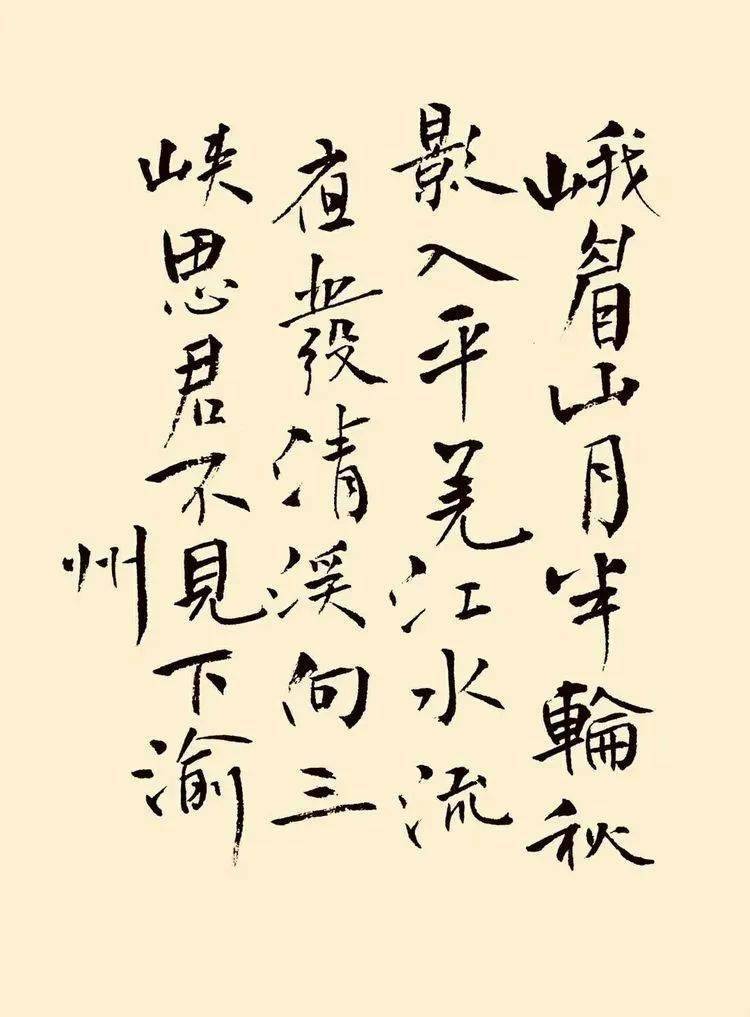 峨眉山月半輪秋
影入平羌江水流
夜發清溪向三
峽思君不見下渝
州